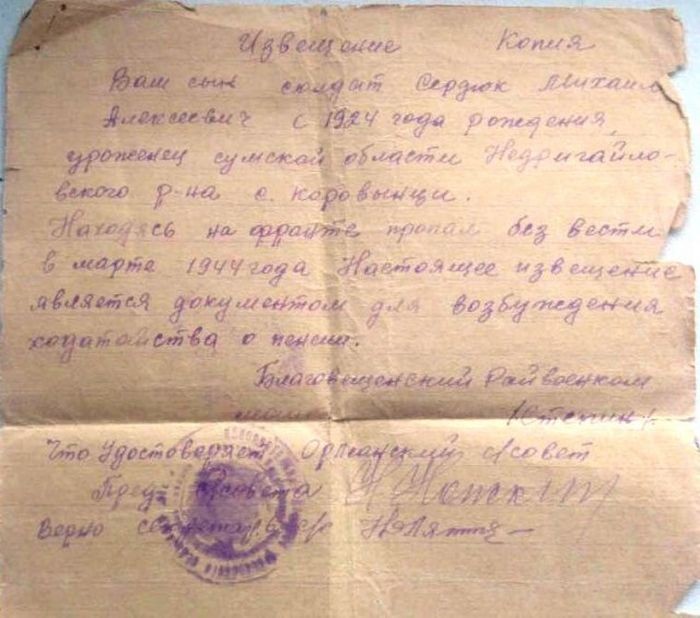 Извещение Копия
Ваш сын солдат Сердюк Михаил
Алексеевич с 1924 года рождения,
уроженец сумской области Недригайло-
вского р-на с. Коровынци.
Находясь на фронте пропал без вести
в марте 1944 года Настоящее извещение
является документом для возбуждения
ходатайства о пенсии.
Благовещенский Райвоенком
Что Удостоверяет
Пред
Верно